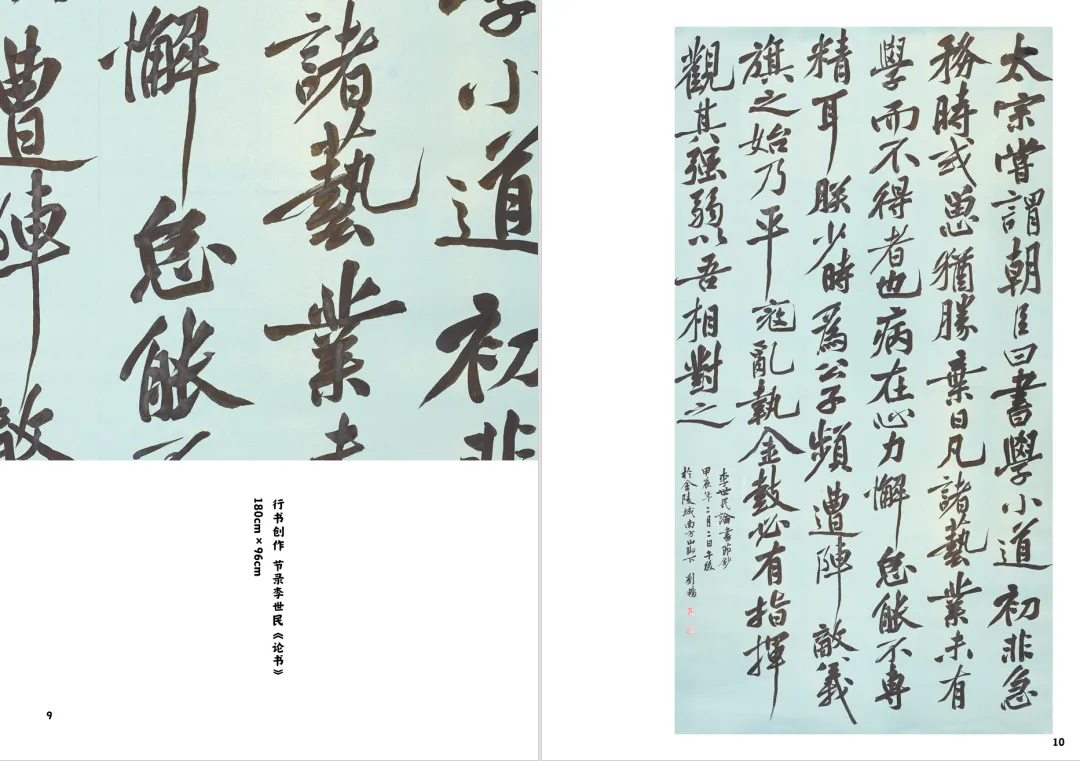 學小道初非
諸藝業未
懈怠能不
遭陣敵
行书创作 节录李世民《论书》
180cm×96cm
9
太宗嘗謂朝臣曰書學小道初非急
務時或思猶勝棄日凡諸藝業未有
學而不得者也病在心力懈怠能不專
精耳朕少時為公子頻遭陣敵義
旗之始乃平寇亂執金鼓必有指揮
觀其强弱以吾相對之
李世民論書節鈔
甲辰年二月二日午後
於金陵城南方山腳下 劉
10